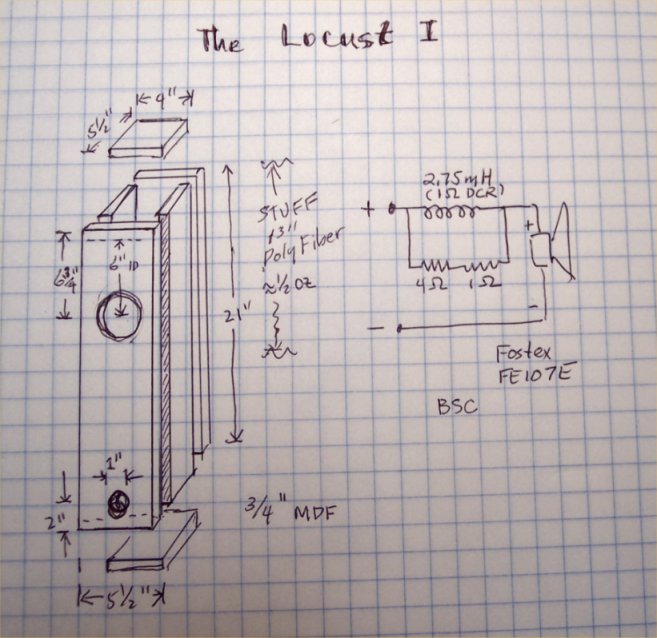 The Locust I
4"
5½"
6¾"
6" ID
21"
STUFF
13"
Poly Fiber
≈½ oz
2.75mH
(1Ω DCR)
+
+
4Ω
1Ω
-
-
Fostex
FE107E
BSC
1"
2"
3/4" MDF
5½"